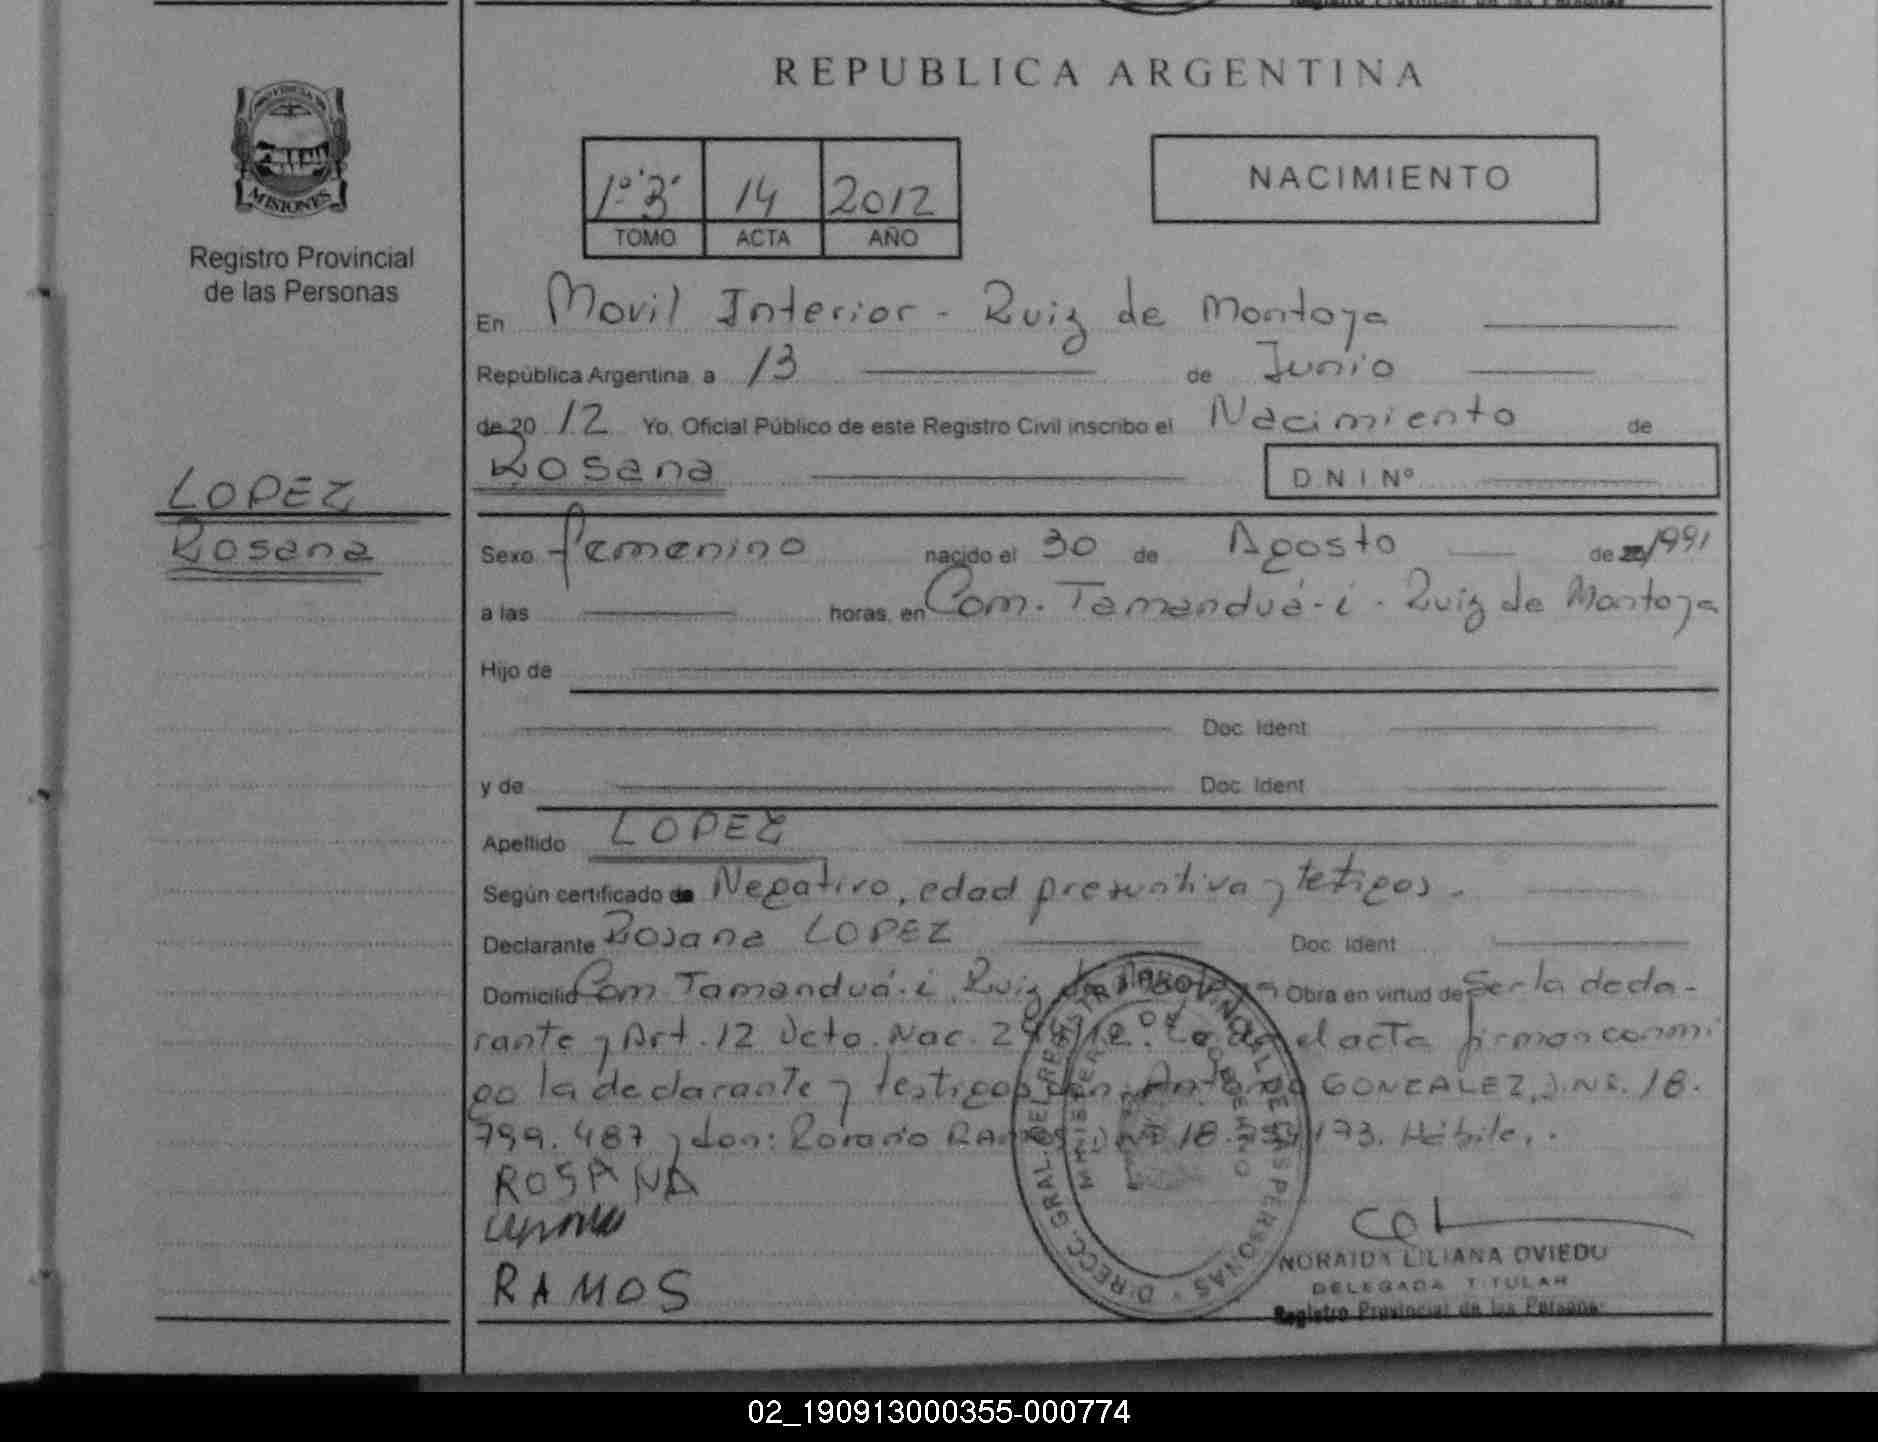 Registro Provincial de las Personas
REPUBLICA ARGENTINA
PROVINCIA DE
MISIONES
Registro Provincial
de las Personas
1º "3" 14 2012
TOMO ACTA AÑO
NACIMIENTO
En Movil Interior - Ruiz de Montoya
República Argentina a 13 de Junio
de 20 12 Yo, Oficial Público de este Registro Civil inscribo el Nacimiento de
Rosana D.N.I. Nº
LOPEZ
Rosana
Sexo femenino nacido el 30 de Agosto de 1991
a las horas, en Com. Tamanduá-i - Ruiz de Montoya
Hijo de
Doc. Ident
y de Doc. Ident
Apellido LOPEZ
Según certificado de Negativo, edad presuntiva y tetigos.
Declarante Rosana LOPEZ Doc. Ident
Domicilio Com Tamanduá-i Ruiz de Montoya Obra en virtud de Ser la decla-
rante y Art. 12 Dcto. Nac. el acta firman conmi
go la declarante y testigos don: Antonio GONZALEZ, D.N.I. 18.
799.487 y don: Rosario RAMOS DNI 18. 173. Hábile.
ROSANA
RAMOS
DIRECC. GRAL. DEL REGISTRO PROVINCIAL DE LAS PERSONAS
MINISTERIO DE GOBIERNO
NORAIDA LILIANA OVIEDO
DELEGADA TITULAR
Registro Provincial de las Personas
02_190913000355-000774